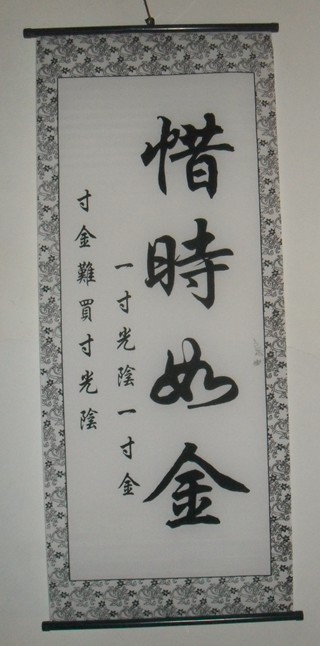 惜時如金
一寸光陰一寸金
寸金難買寸光陰